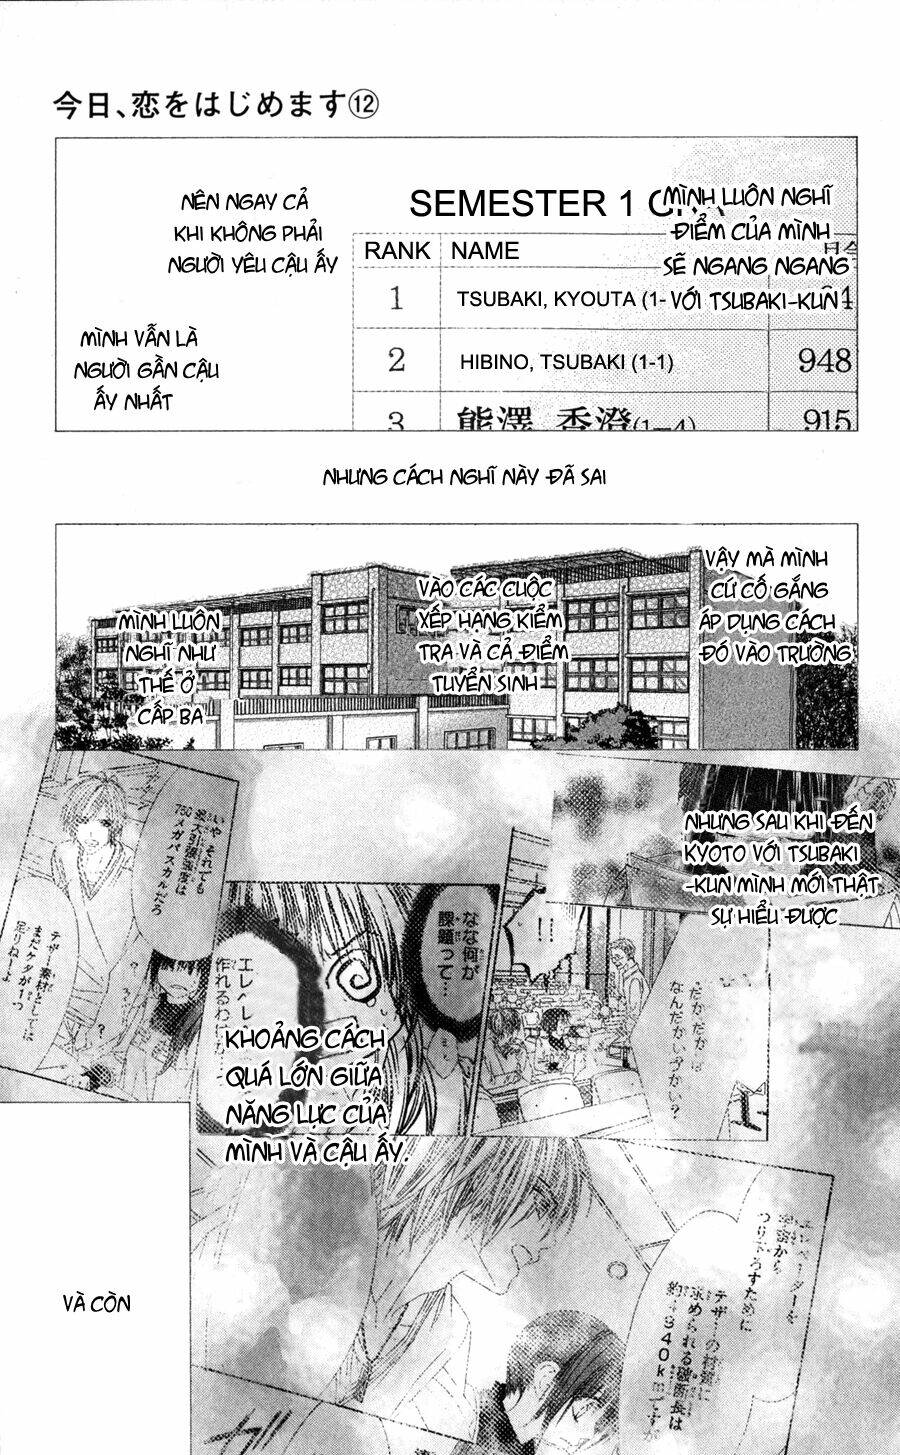 今日、恋をはじめます⑫
MÌNH LUÔN NGHĨ
ĐIỂM CỦA MÌNH
SẼ NGANG NGANG
VỚI TSUBAKI-KUN
NÊN NGAY CẢ
KHI KHÔNG PHẢI
NGƯỜI YÊU CẬU ẤY
MÌNH VẪN LÀ
NGƯỜI GẦN CẬU
ẤY NHẤT
SEMESTER 1
RANK NAME
1 TSUBAKI, KYOUTA (1-
2 HIBINO, TSUBAKI (1-1) 948
3 熊澤 香澄(1-4) 915
NHƯNG CÁCH NGHĨ NÀY ĐÃ SAI
VẬY MÀ MÌNH
CỨ CỐ GẮNG
ÁP DỤNG CÁCH
ĐÓ VÀO TRƯỜNG
VÀO CÁC CUỘC
XẾP HẠNG KIỂM
TRA VÀ CẢ ĐIỂM
TUYỂN SINH
MÌNH LUÔN
NGHĨ NHƯ
THẾ Ở
CẤP BA
NHƯNG SAU KHI ĐẾN
KYOTO VỚI TSUBAKI
-KUN MÌNH MỚI THẬT
SỰ HIỂU ĐƯỢC
!!
なんだかいづかい?
なな何が
課題って…
エレベ
作れるわ
いや それでも
最大引張強度は
750メガパスカルだろ
テザー素材としては
まだケタが1つ
足りねーよ
KHOẢNG CÁCH
QUÁ LỚN GIỮA
NĂNG LỰC CỦA
MÌNH VÀ CẬU ẤY.
エレベーターを
宇宙から
つり下ろすために
テザーの材質に
求められる破断長は
約4940kmですが
VÀ CÒN